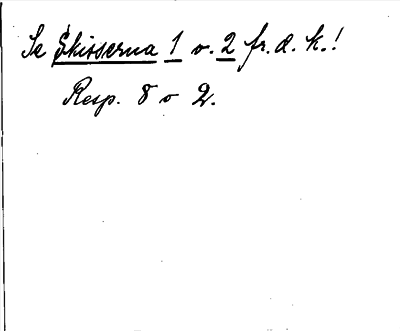 Se Skisserna 1 o. 2 fr. d. k.!
Resp. 8 o 2.